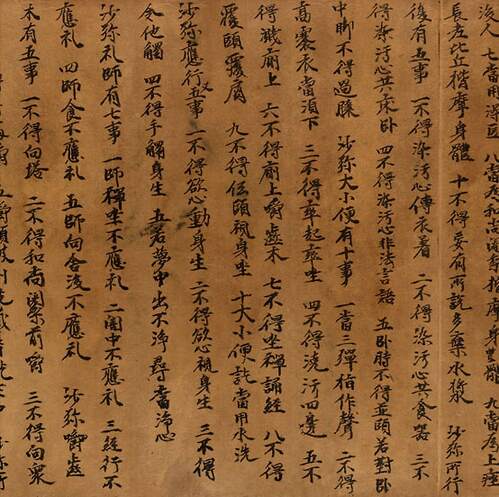 九當為上座
長老比丘揩摩身體 十不得妄有所說多棄水漿 沙弥所行
復有五事 一不得染污心傳衣著 二不得染污心共食器 三不
得染污心共床卧 四不得染污心非法言語 五卧時不得並頭若對卧
中脚不得過膝 沙弥大小便有十事 一當三彈指作聲 二不得
高褰衣當須下 三不得卒起卒坐 四不得澆污四邊 五不
得廁上 六不得廁上嚼齒木 七不得坐禪誦經 八不得
覆頭覆肩 九不得低頭視身生 十大小便訖當用水洗
沙弥應行五事 一不得欲心動身生 二不得欲心視身生 三不得
令他觸 四不得手觸身生 五若夢中出不淨尋當淨心
沙弥礼師有七事 一師禪坐不應礼 二闇中不應礼 三經行不
應礼 四師食不應礼 五師向舍後不應礼 沙弥嚼齒
木有五事 一不得向塔 二不得和尚闍梨前嚼 三不得向衆